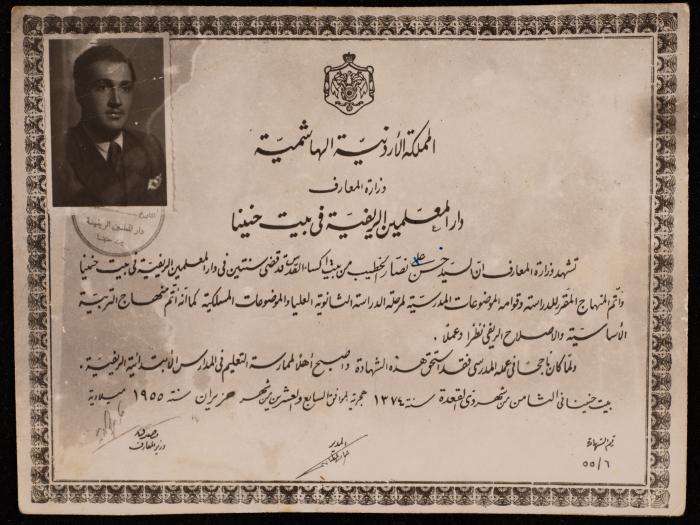 المملكة الأردنية الهاشمية
وزارة المعارف
دار المعلمين الريفية في بيت حنينا
دار المعلمين الريفية
بيت حنينا
تشهد وزارة المعارف ان السيد حسن علي نصار الخطيب من بيت اكسا - القدس قد قضى سنتين في دار المعلمين الريفية في بيت حنينا
واتم المنهاج المقرر للدراسة وقوامه الموضوعات المدرسية لمرحلة الدراسة الثانوية العليا والموضوعات المسلكية كما انه اتم منهاج التربية
الأساسية والاصلاح الريفي نظرا وعملا .
ولما كان ناجحا في عمله المدرسي فقد استحق هذه الشهادة واصبح أهلا لممارسة التعليم في المدارس الابتدائية الريفية .
بيت حنينا في الثامن من شهر ذي القعدة سنة ١٣٧٤ هجرية الموافق السابع والعشرين من شهر حزيران سنة ١٩٥٥ ميلادية
رقم الشهادة
٥٥/٦
المدير
مصدق
وزير المعارف